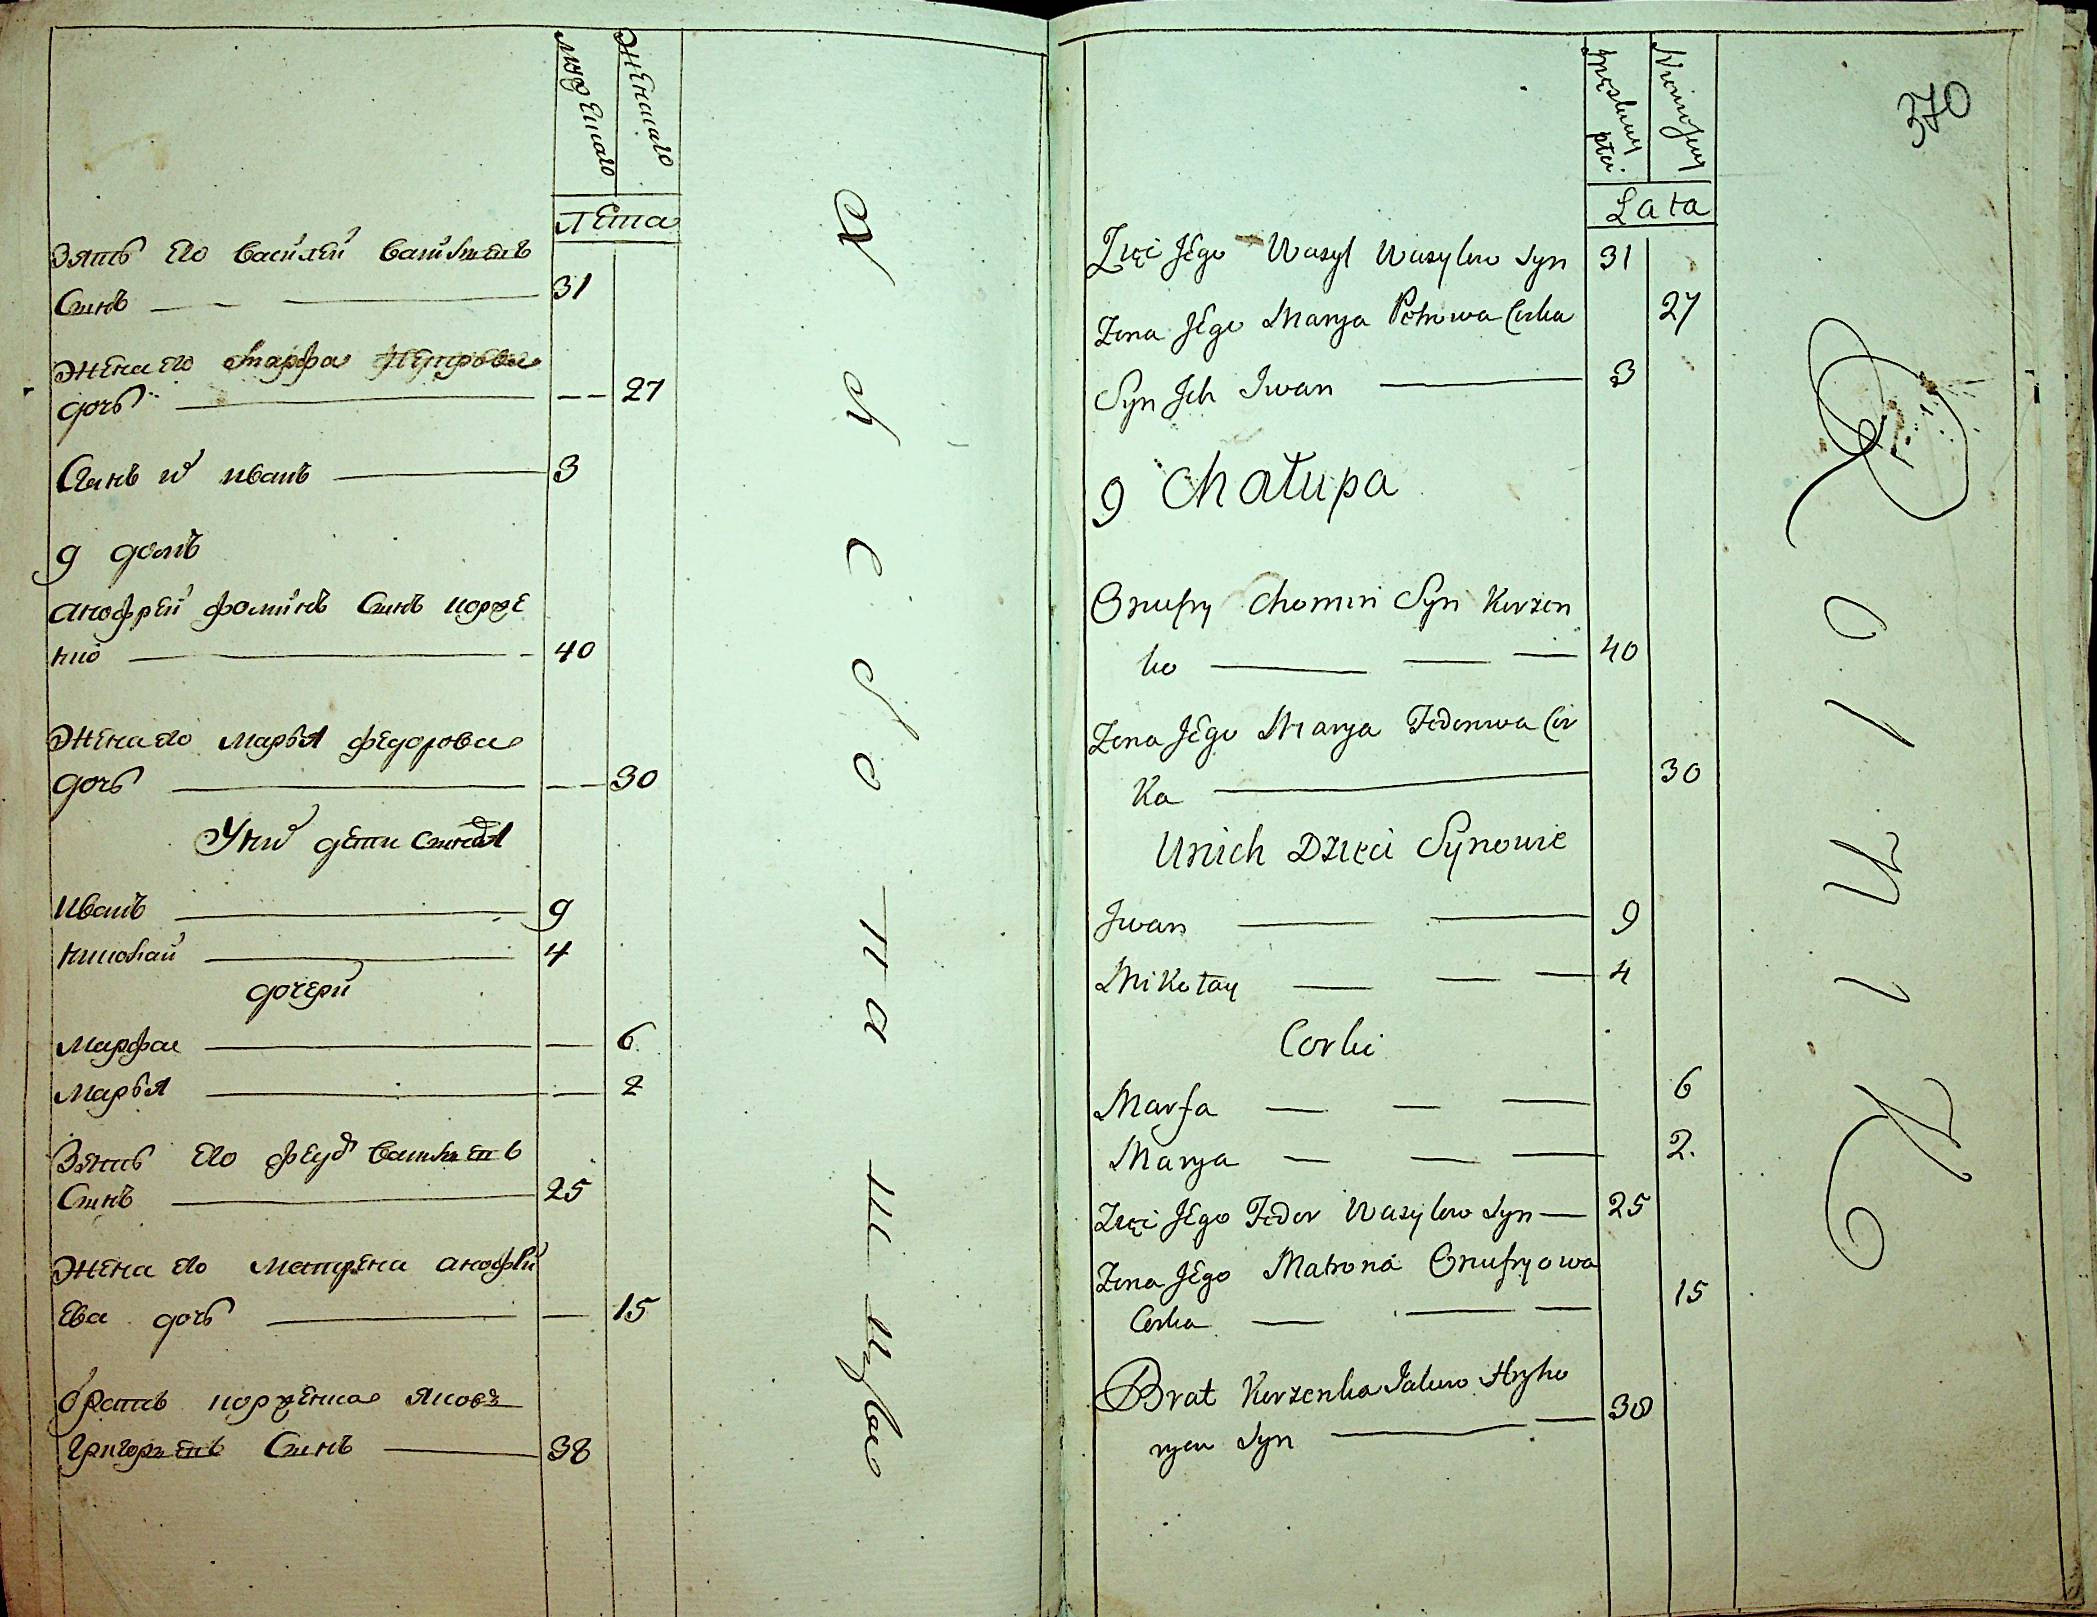 Мужескаго
Женскаго
Лета
Зять его Василей Васильевъ
Синъ 31
Жена его Марфа Петрова
дочь 27
Синъ их Иванъ 3
9 домъ
Анофрей Фоминъ Синъ Корже
нко 40
Жена его Марья Федорова
дочь 30
У них дети Синовья
Иванъ 9
Николай 4
дочери
Марфа 6
Марья 2
Зять его Федо Васильевъ
Синъ 25
Жена его Матрена Анофри
ева дочь 15
брать Корженка Яковъ
Григорьевъ Синъ 38
370
Męskiey płci
Niewieściey
Lata
Zięć Jego Wasyl Wasylow Syn 31
Zona Jego Marya Petrowa Corka 27
Syn Ich Iwan 3
9 Chałupa
Onufry Chomin Syn Korzen
ko 40
Zona Jego Marya Fedorowa Cor
Ka 30
Unich Dzieci Synowie
Iwan 9
Mikołay 4
Corki
Marfa 6
Marya 2.
Zięć Jego Fedor Wasylow Syn 25
Zona Jego Matrona Onufryowa
Corka 15
Brat Korzenka Jakow Hryho
ryew Syn 38